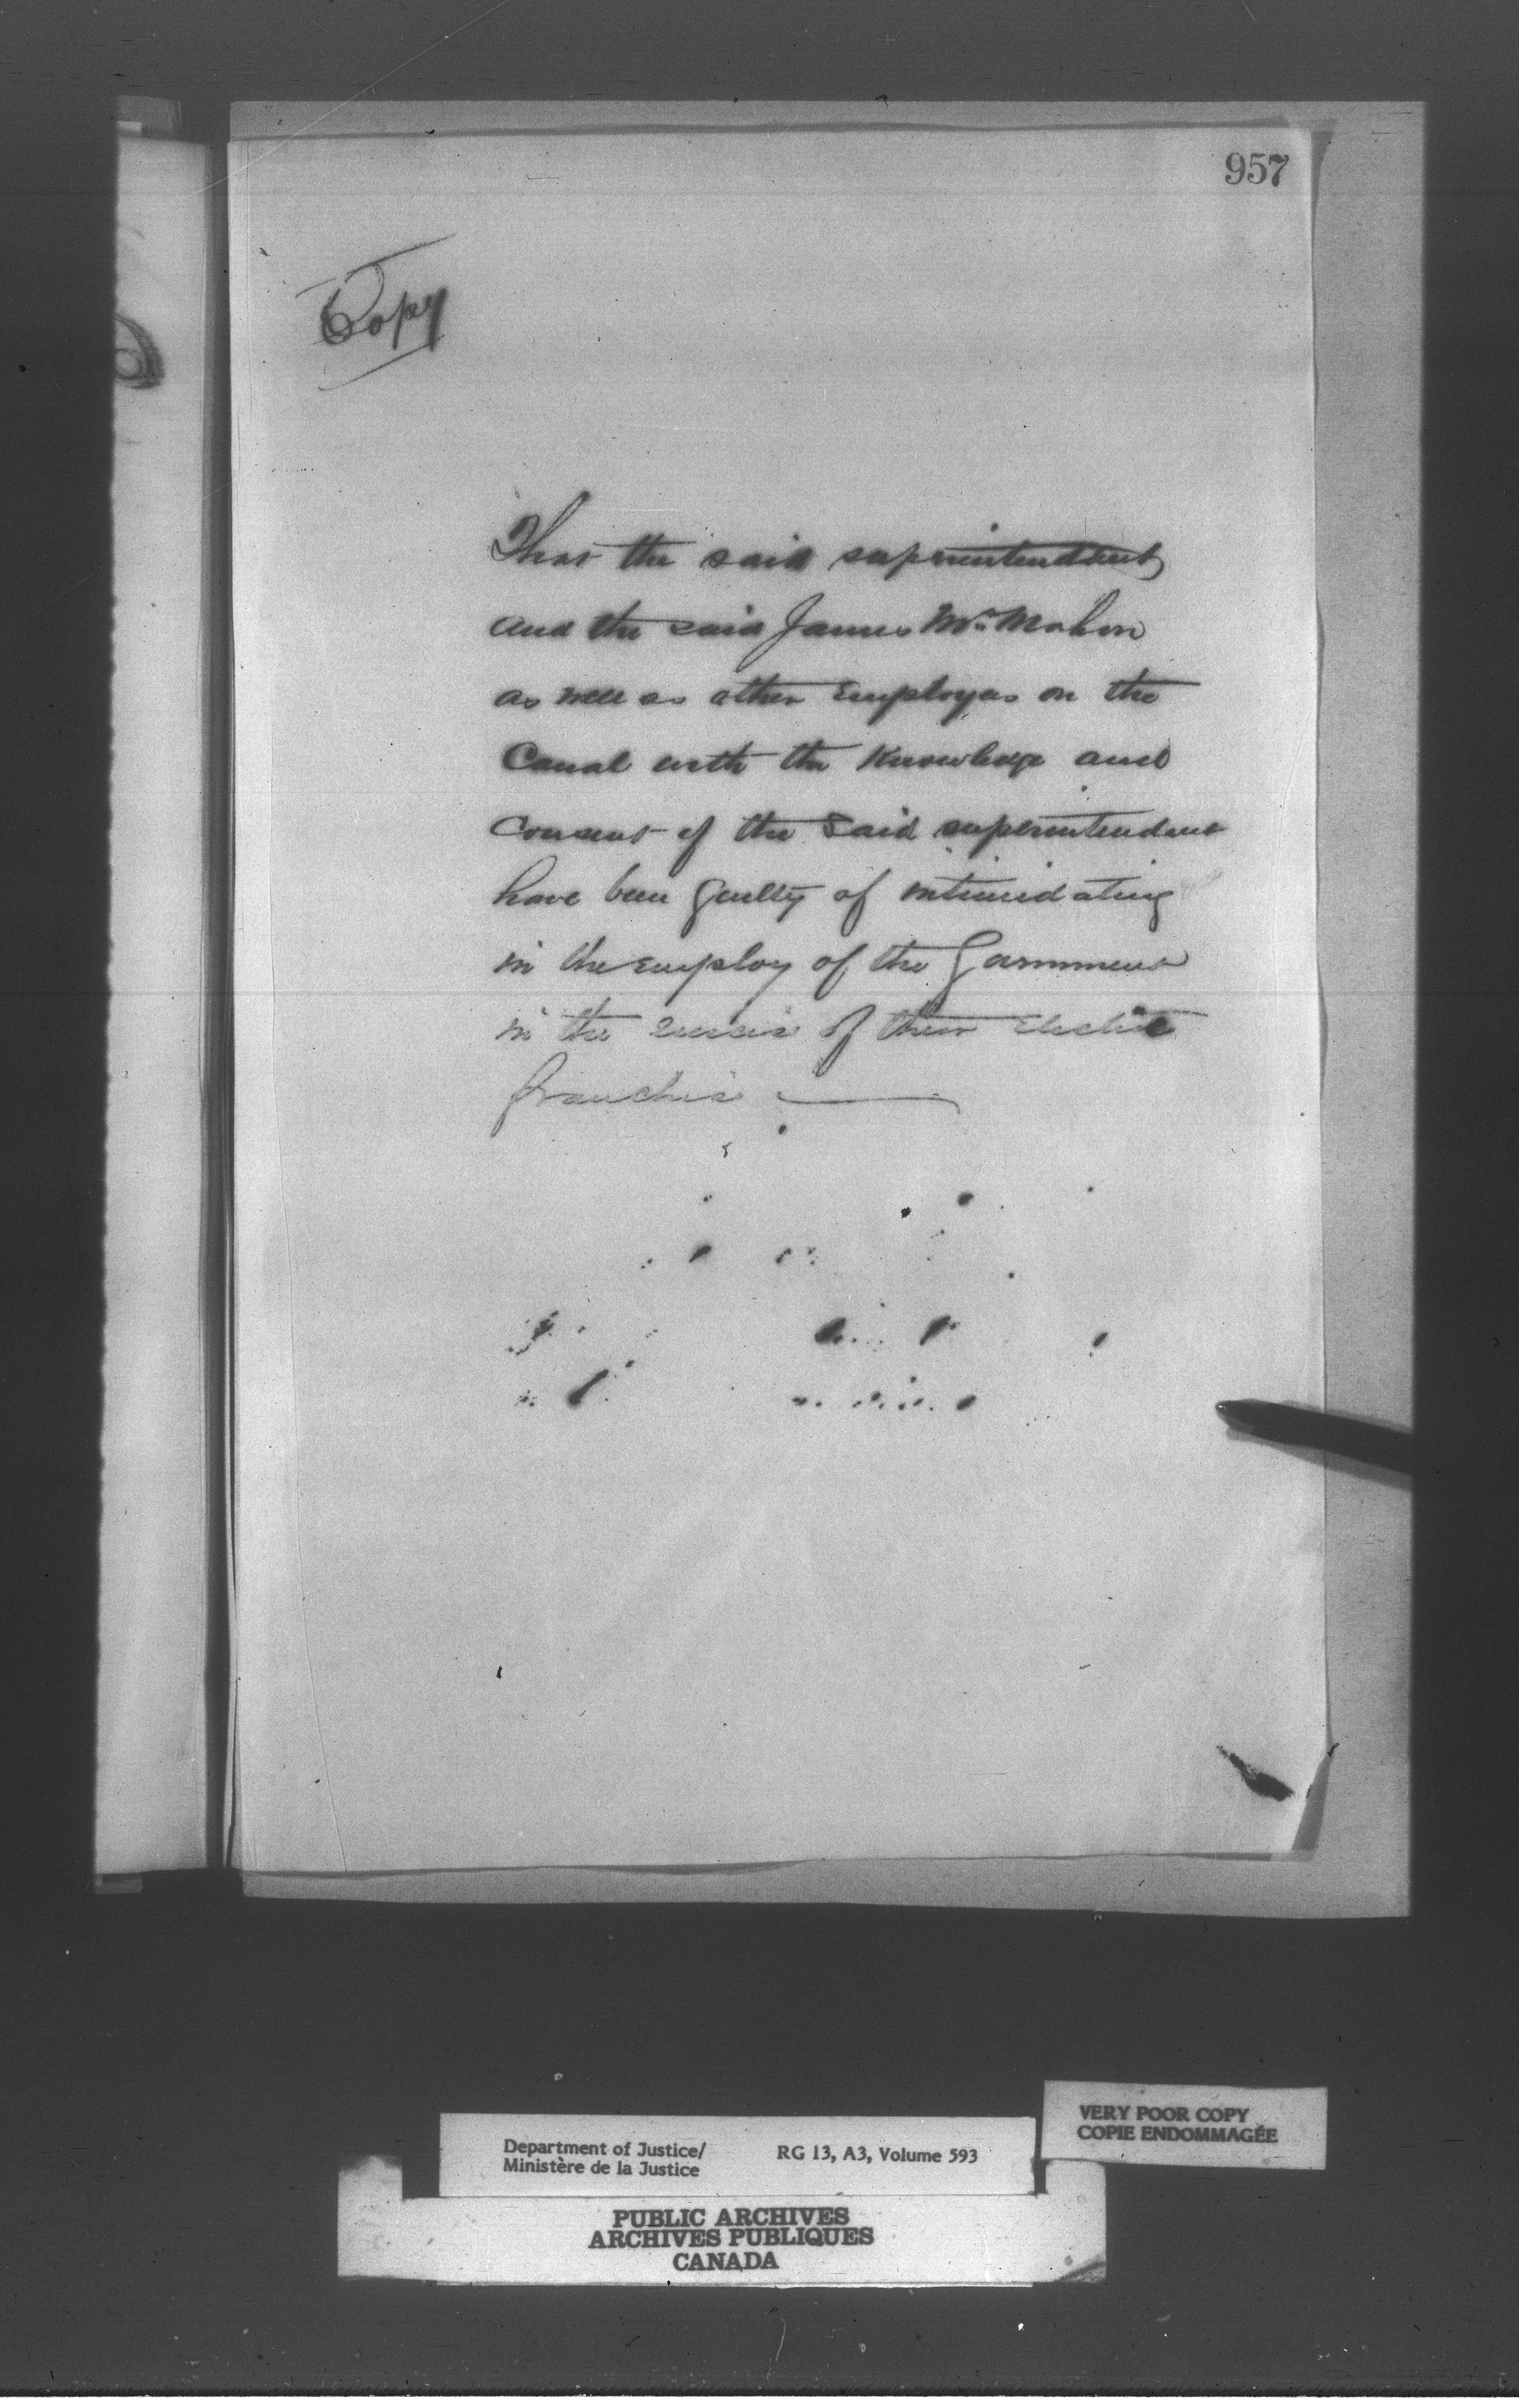 957
Copy
That the said superintendent
and the said James McMahon
as well as other Employes on the
Canal with the Knowledge and
Consent of the said superintendent
have been guilty of intimidating
in the employ of the Government
in the exercise of their Elective
franchise
Department of Justice/
Ministère de la Justice
RG 13, A3, Volume 593
VERY POOR COPY
COPIE ENDOMMAGÉE
PUBLIC ARCHIVES
ARCHIVES PUBLIQUES
CANADA